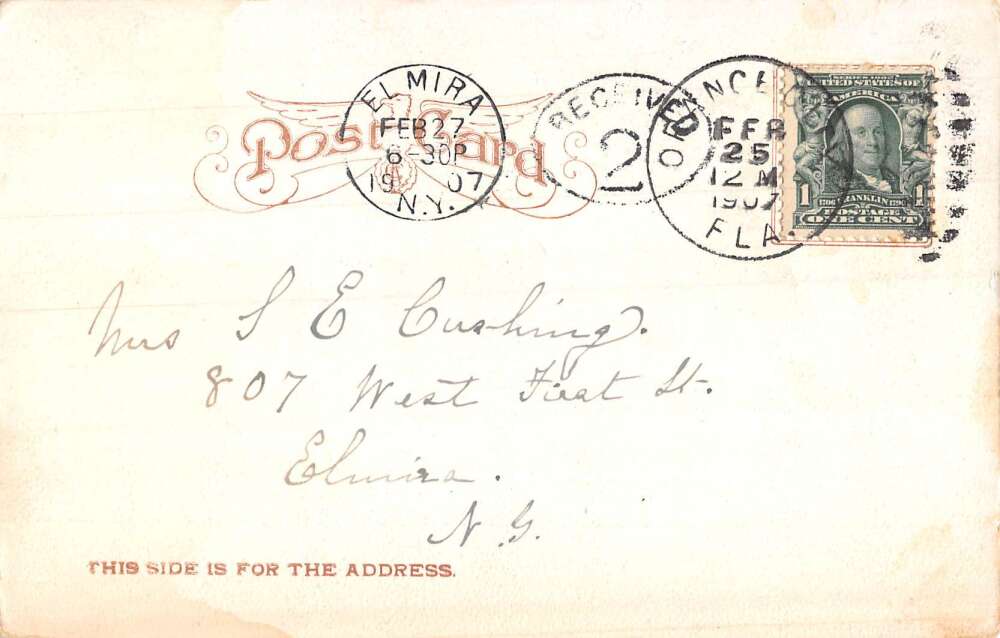 ELMIRA
FEB 27
6-30P
19 07
N.Y.
RECEIVED
2
FEB
25
12 M
1907
FLA.
SERIES 1902
UNITED STATES OF
AMERICA
1 1706 FRANKLIN 1790 1
POSTAGE
ONE CENT
Post Card
Mrs S E Cushing.
807 West First St.
Elmira.
N.Y.
THIS SIDE IS FOR THE ADDRESS.